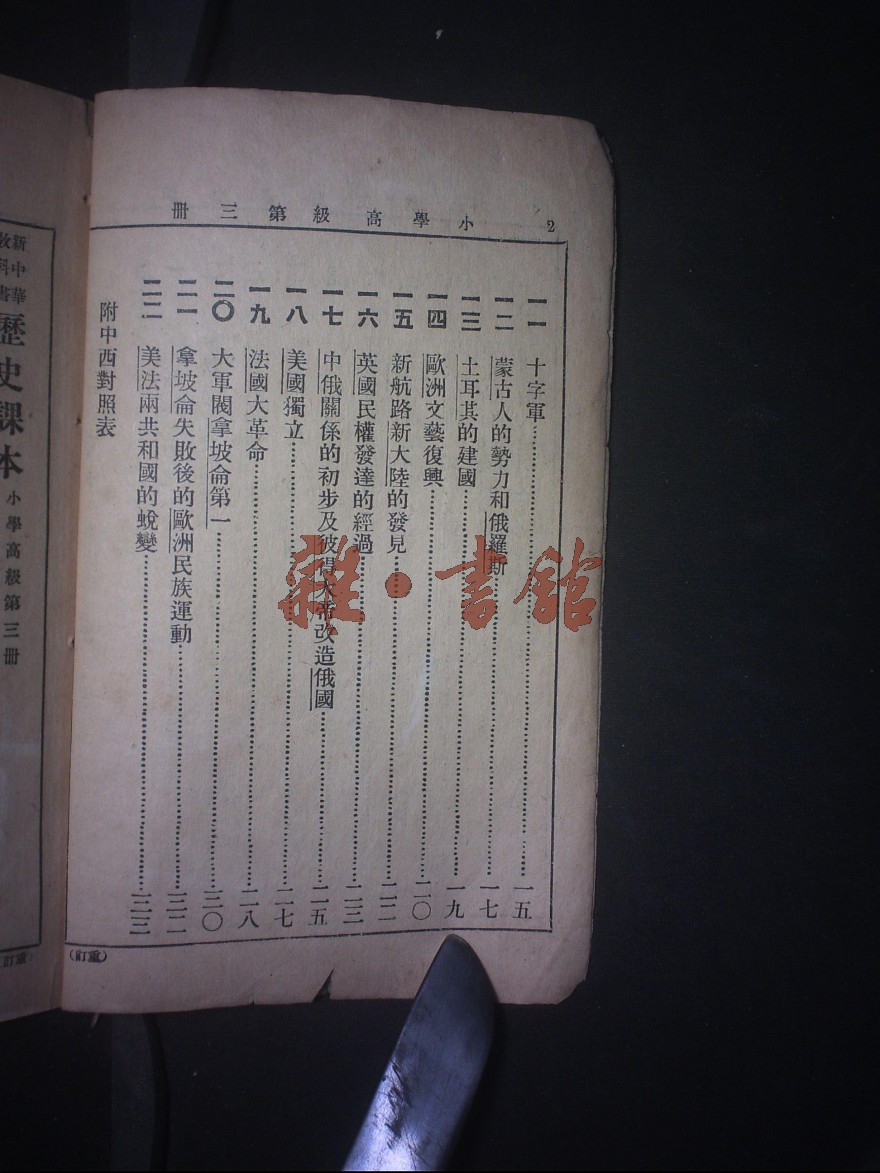 小學高級第三冊
2
一一 十字軍……一五
一二 蒙古人的勢力和俄羅斯……一七
一三 土耳其的建國……一九
一四 歐洲文藝復興……二〇
一五 新航路新大陸的發見……二二
一六 英國民權發達的經過……二三
一七 中俄關係的初步及彼得大帝改造俄國……二五
一八 美國獨立……二七
一九 法國大革命……二八
二〇 大軍閥拿坡侖第一……三〇
二一 拿坡侖失敗後的歐洲民族運動……三二
二二 美法兩共和國的蛻變……三三
附中西對照表
(重訂)
新中華教科書
歷史課本
小學高級第三冊
重訂)
雜·書館